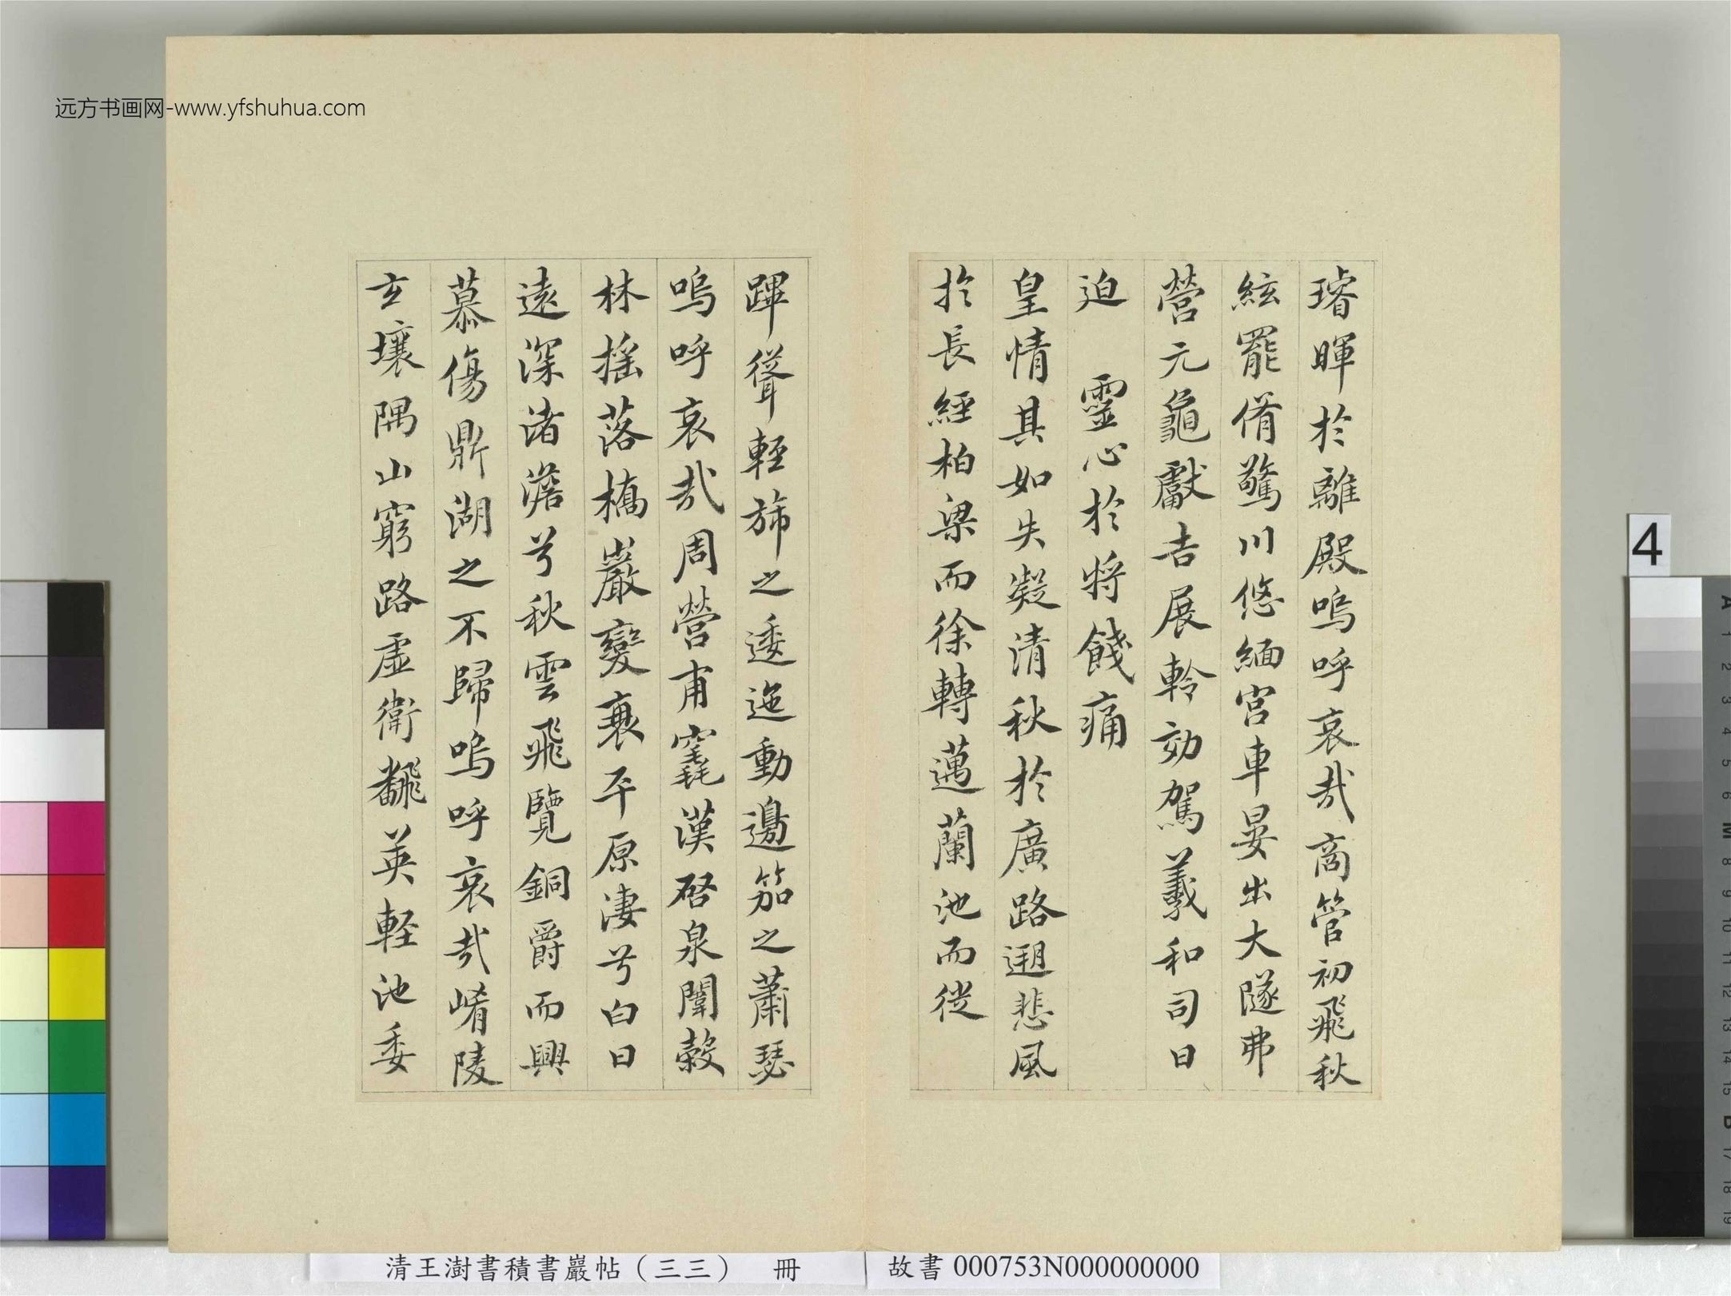 远方书画网-www.yfshuhua.com
璿暉於離殿嗚呼哀哉商管初飛秋
絃罷脩驚川悠緬宮車晏出大隧弗
營元龜獻吉展軨効駕羲和司日
迫 靈心於將餞痛
皇情其如失凝清秋於廣路遡悲風
於長經柏梁而徐轉邁蘭池而徙
蹕聳輕旆之逶迤動邊笳之蕭瑟
嗚呼哀哉周營甫窀漢啓泉闈穀
林搖落橋巖變衰平原淒兮白日
遠深渚澹兮秋雲飛覽銅爵而興
慕傷鼎湖之不歸嗚呼哀哉崤陵
玄壤隅山窮路虛衛飜英輕池委
4
清王澍書積書巖帖（三三） 冊
故書 000753N000000000